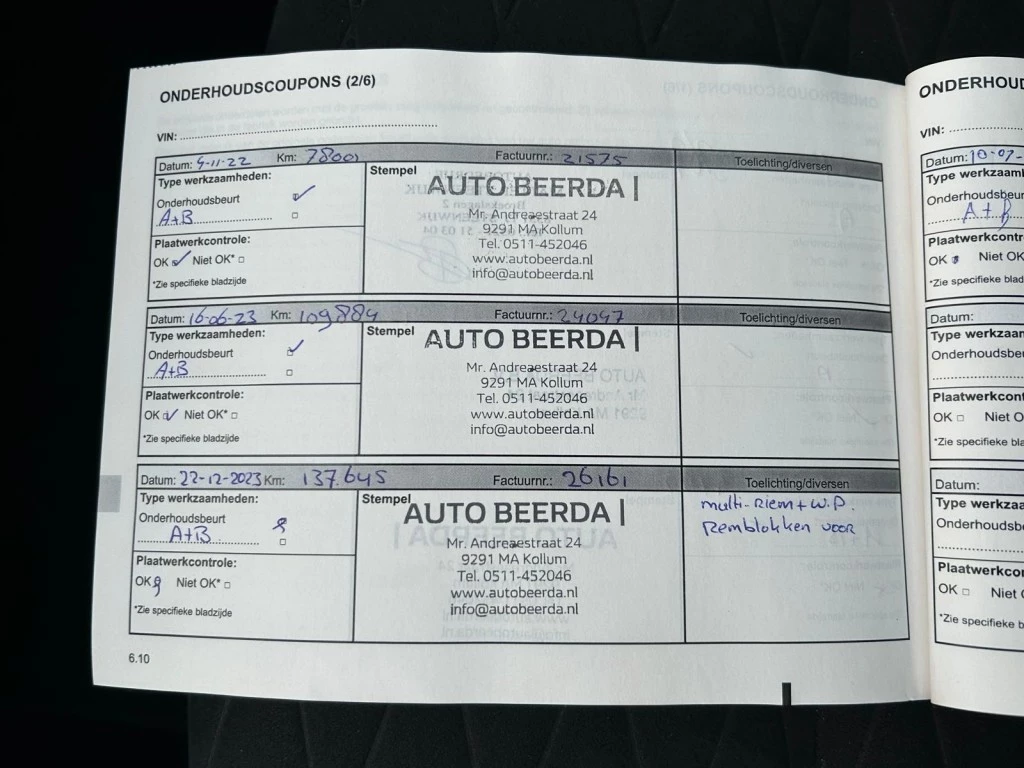 ONDERHOUDSCOUPONS (2/6)
VIN:
Datum: 4-11-22 Km: 78001 Factuurnr.: 21575 Toelichting/diversen
Type werkzaamheden:
Onderhoudsbeurt
A+B
Plaatwerkcontrole:
OK Niet OK*
*Zie specifieke bladzijde
Stempel
AUTO BEERDA |
Mr. Andreaestraat 24
9291 MA Kollum
Tel. 0511-452046
www.autobeerda.nl
info@autobeerda.nl
Datum: 16-06-23 Km: 109884 Factuurnr.: 24047 Toelichting/diversen
Type werkzaamheden:
Onderhoudsbeurt
A+B
Plaatwerkcontrole:
OK Niet OK*
*Zie specifieke bladzijde
Stempel
AUTO BEERDA |
Mr. Andreaestraat 24
9291 MA Kollum
Tel. 0511-452046
www.autobeerda.nl
info@autobeerda.nl
Datum: 22-12-2023 Km: 137.645 Factuurnr.: 26161 Toelichting/diversen
Type werkzaamheden:
Onderhoudsbeurt
A+B
Plaatwerkcontrole:
OK Niet OK*
*Zie specifieke bladzijde
Stempel
AUTO BEERDA |
Mr. Andreaestraat 24
9291 MA Kollum
Tel. 0511-452046
www.autobeerda.nl
info@autobeerda.nl
multi-Riem + W.P.
Remblokken voor
6.10
ONDERHOUD
VIN:
Datum: 10-07-
Type werkzaam
Onderhoudsbeur
A+B
Plaatwerkcontr
OK Niet OK
*Zie specifieke blad
Datum:
Type werkzaam
Onderhoudsbe
Plaatwerkcont
OK Niet O
*Zie specifieke bla
Datum:
Type werkza
Onderhoudsb
Plaatwerkco
OK Niet
*Zie specifieke